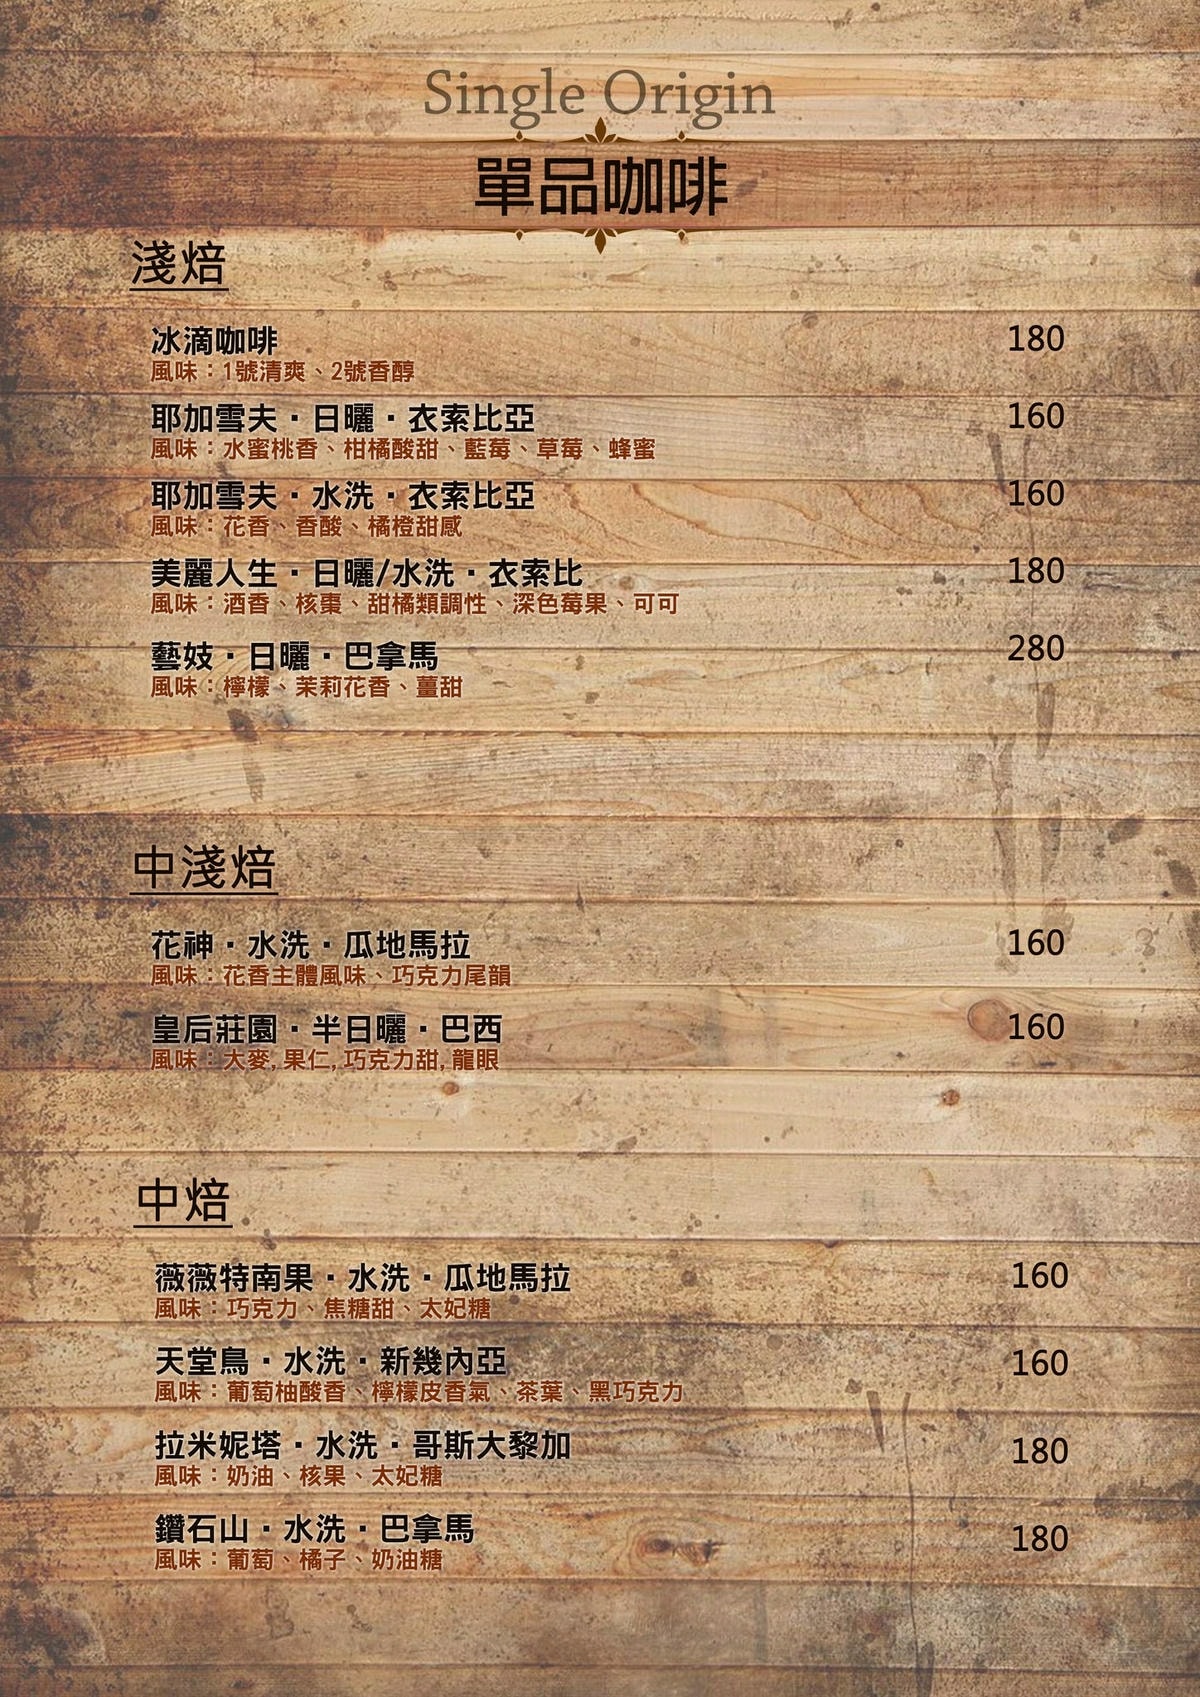 Single Origin
單品咖啡
淺焙
冰滴咖啡 180
風味：1號清爽、2號香醇
耶加雪夫·日曬·衣索比亞 160
風味：水蜜桃香、柑橘酸甜、藍莓、草莓、蜂蜜
耶加雪夫·水洗·衣索比亞 160
風味：花香、香酸、橘橙甜感
美麗人生·日曬/水洗·衣索比 180
風味：酒香、核棗、甜橘類調性、深色莓果、可可
藝妓·日曬·巴拿馬 280
風味：檸檬、茉莉花香、薑甜
中淺焙
花神·水洗·瓜地馬拉 160
風味：花香主體風味、巧克力尾韻
皇后莊園·半日曬·巴西 160
風味：大麥,果仁,巧克力甜,龍眼
中焙
薇薇特南果·水洗·瓜地馬拉 160
風味：巧克力、焦糖甜、太妃糖
天堂鳥·水洗·新幾內亞 160
風味：葡萄柚酸香、檸檬皮香氣、茶葉、黑巧克力
拉米妮塔·水洗·哥斯大黎加 180
風味：奶油、核果、太妃糖
鑽石山·水洗·巴拿馬 180
風味：葡萄、橘子、奶油糖